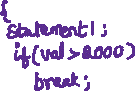 {
Statement 1;
if(val>2000)
break;